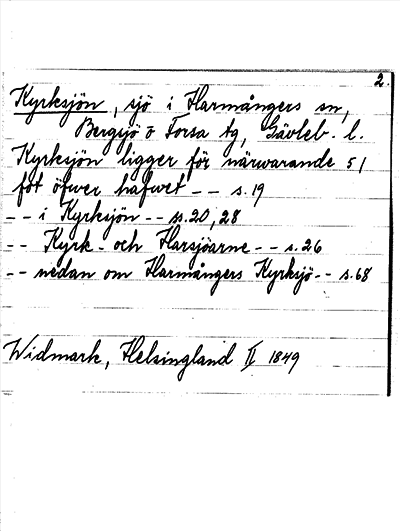 2.
Kyrksjön, sjö i Harmångers sn,
Bergsjö o Forsa tg, Gävleb. l.
Kyrksjön ligger för närwarande 51
fot öfwer hafwet -- s. 19
-- i Kyrksjön -- s. 20, 28
-- Kyrk- och Harsjöarne -- s. 26
-- nedan om Harmångers Kyrksjö -- s. 68
Widmark, Helsingland II 1849